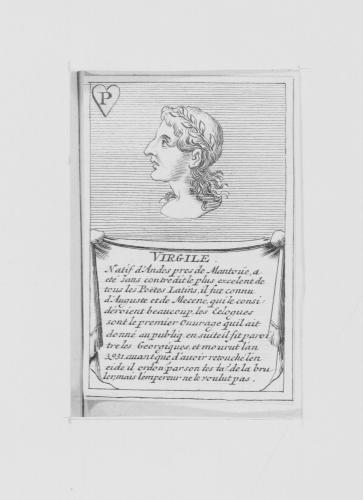 P
VIRGILE.
Natif d'Andes pres de Mantoüe, a
eté sans contredit le plus excelent de
tous les Poëtes Latins, il fut connu
d'Auguste et de Mecene, qui le consi
deroient beaucoup, les Eclogues
sont le premier Ouurage quil ait
donné au publiq, en suite il fit paroi
tre les Georgiques, et mourut lan
3931. auant que d'auoir retouché l'en
eide il ordon͂a par son testa.t de la bru
ler, mais l'empereur ne le voulut pas.